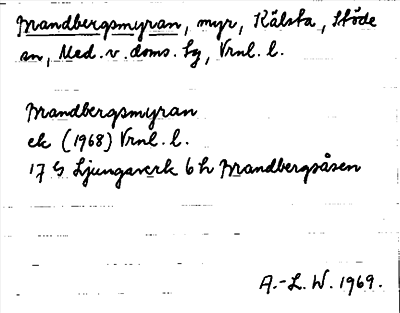 Brandbergsmyran, myr, Kälsta, Stöde
sn, Med. v. doms. lg, Vrnl. l.
Brandbergsmyran
ek (1968) Vrnl. l.
17 G Ljungaverk 6 h Brandbergsåsen
A.-L. W. 1969.